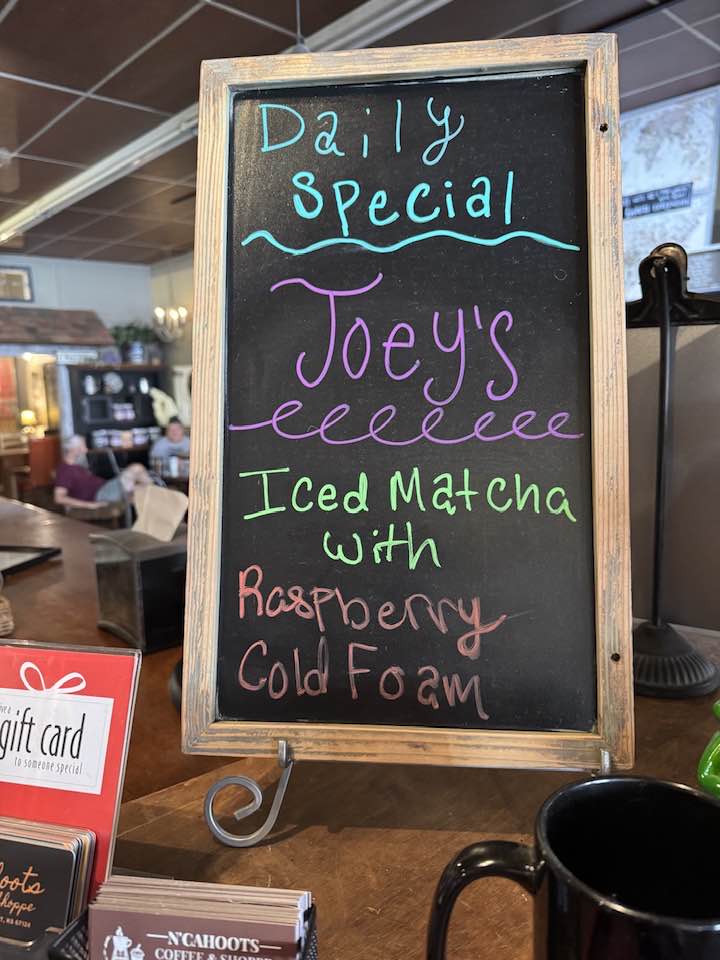 Daily
Special
Joey's
Iced Matcha
with
Raspberry
Cold Foam
gift card
to someone special
N'CAHOOTS
COFFEE & SHOPPE